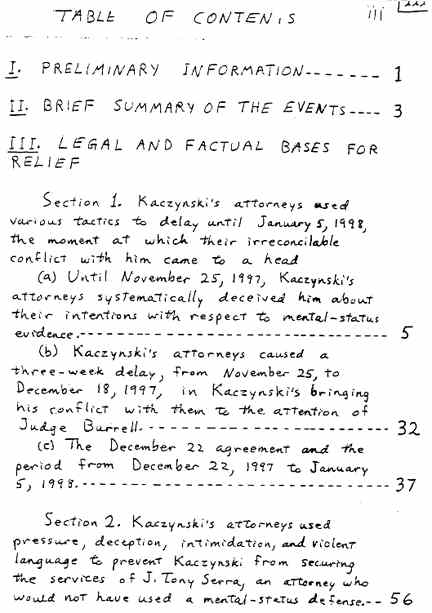 TABLE OF CONTENTS iii
I. PRELIMINARY INFORMATION------- 1
II. BRIEF SUMMARY OF THE EVENTS---- 3
III. LEGAL AND FACTUAL BASES FOR
RELIEF
Section 1. Kaczynski's attorneys used
various tactics to delay until January 5, 1998,
the moment at which their irreconcilable
conflict with him came to a head
(a) Until November 25, 1997, Kaczynski's
attorneys systematically deceived him about
their intentions with respect to mental-status
evidence.------------------------------- 5
(b) Kaczynski's attorneys caused a
three-week delay, from November 25, to
December 18, 1997, in Kaczynski's bringing
his conflict with them to the attention of
Judge Burrell.------------------------ 32
(c) The December 22 agreement and the
period from December 22, 1997 to January
5, 1998.------------------------------- 37
Section 2. Kaczynski's attorneys used
pressure, deception, intimidation, and violent
language to prevent Kaczynski from securing
the services of J. Tony Serra, an attorney who
would not have used a mental-status defense.-- 56